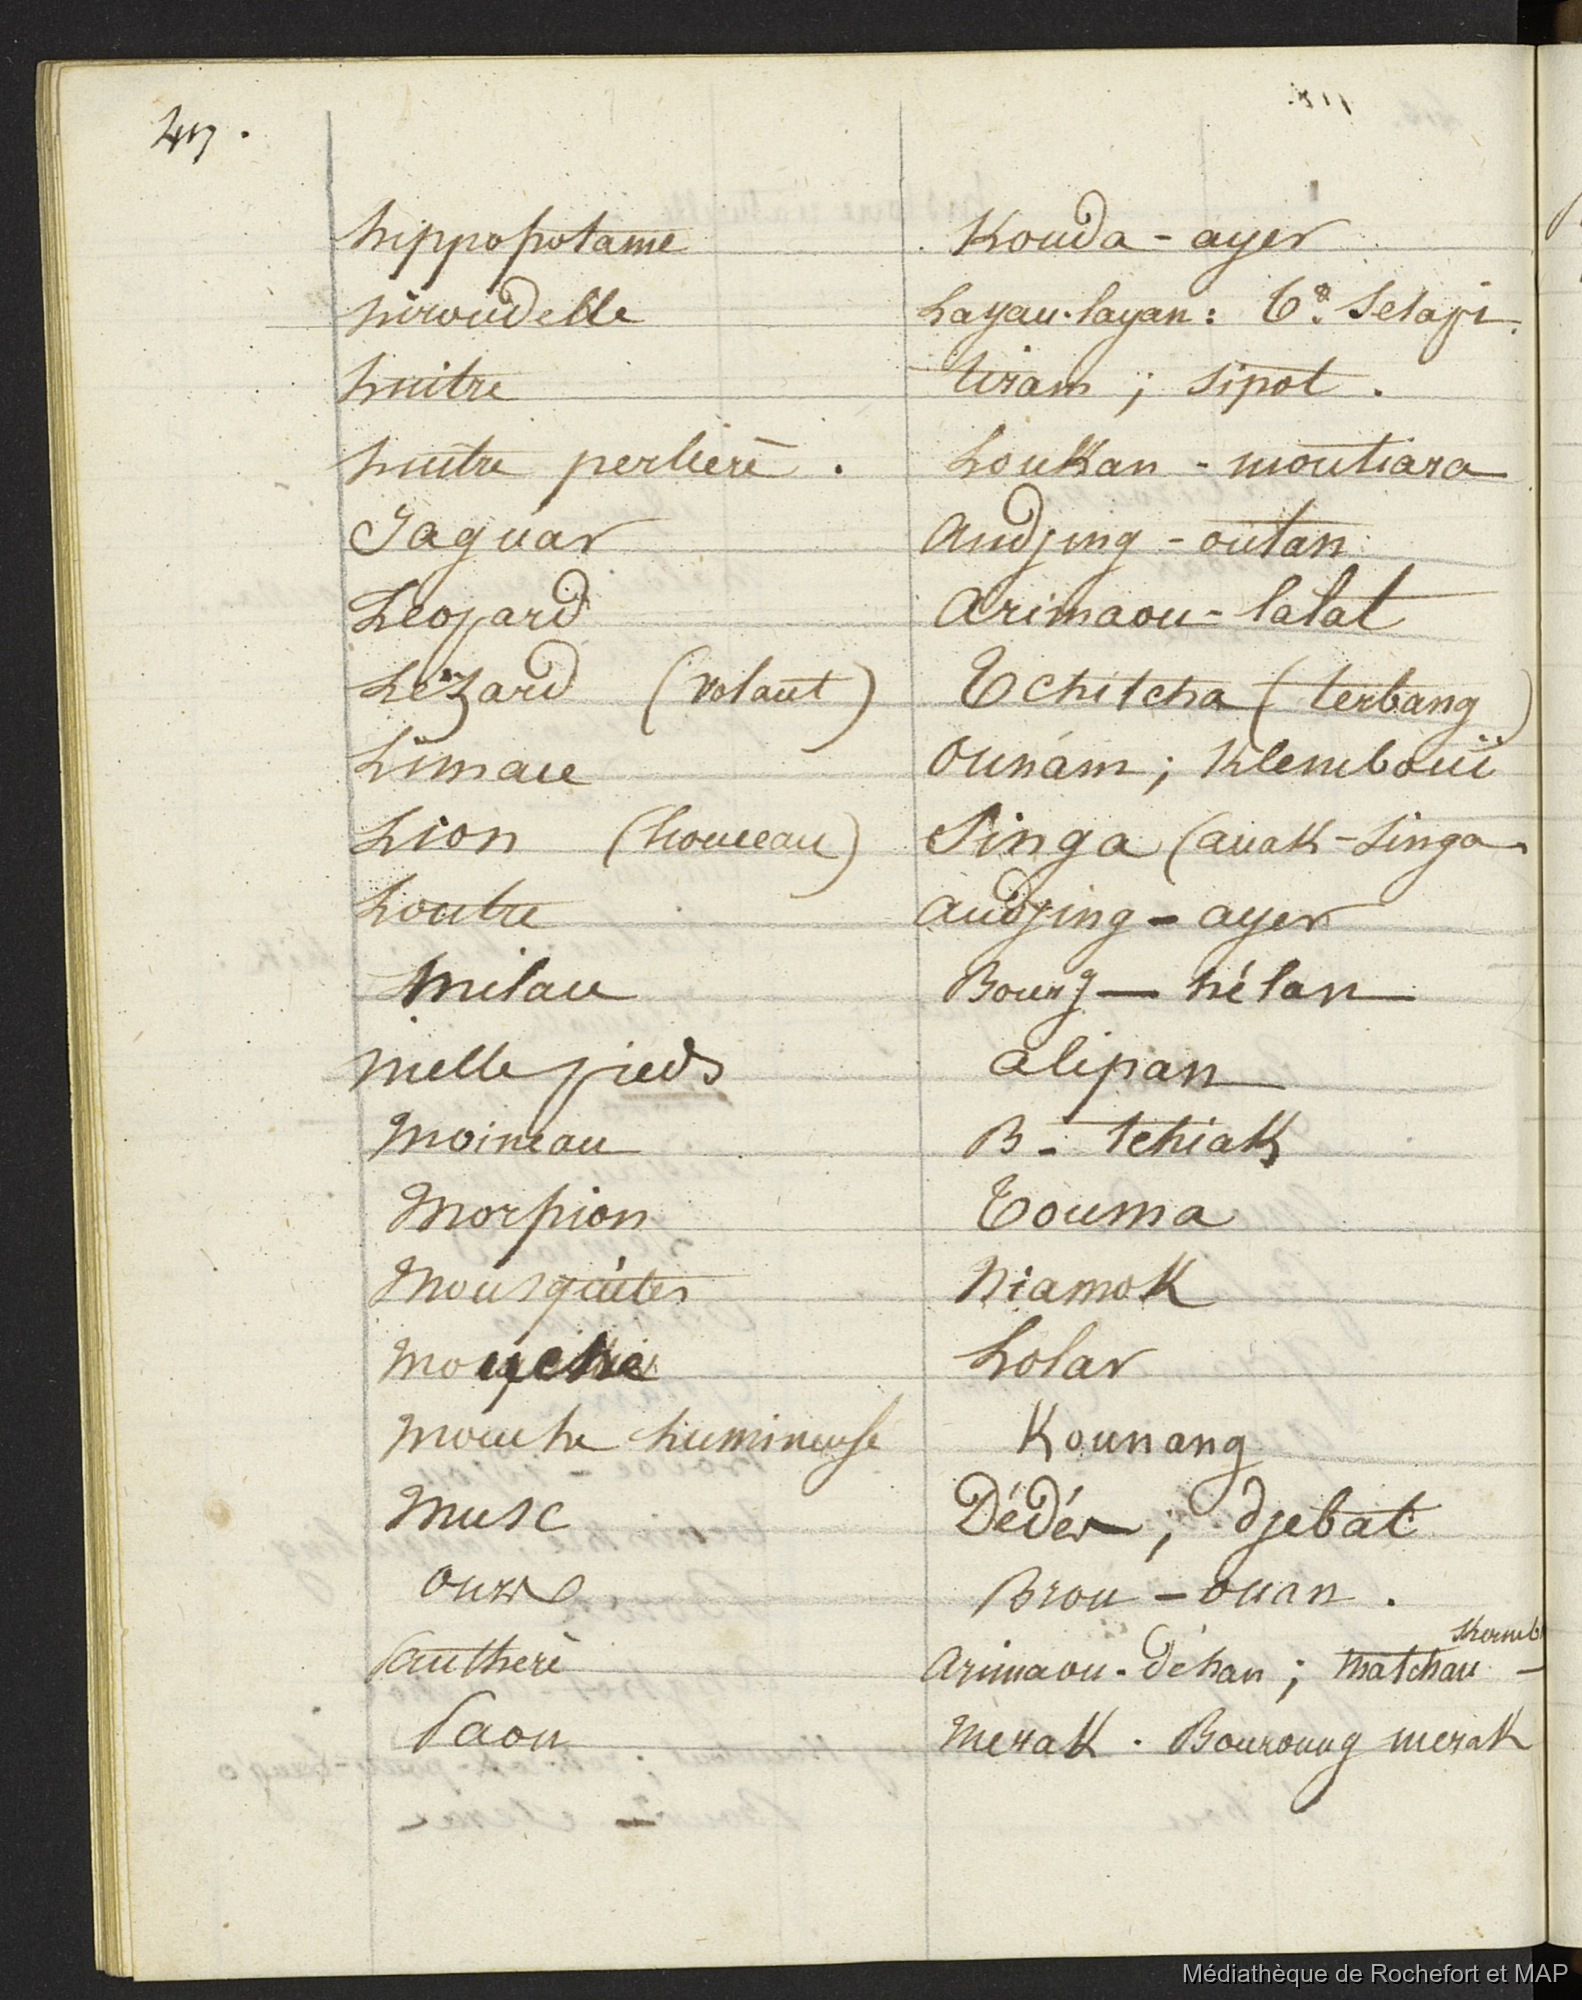 hippopotame Kouda - ayer
hirondelle Layan-layan: Selapi
huitre tiram ; sipot.
huitre perlière. Loukan - moutiara
Jaguar Andjing - outan
Leopard Arimaou - lalat
Lézard (volant) Tchitcha (terbang)
Limace Klembouii
Lion (lionceau) Singa (anak-singa
Loutre andjing - ayer
Milan Boung — hélan
Mille pieds alipan
Moineau B- tchiak
Morpion Touma
Mousquites Niamok
Mouche Lolar
Mouche lumineuse Kounang
Musc Dédés ; djebat
Ours Brou - ouan.
Panthère Arimaou - déhan ; matchan -
Paon Merak. Bouroung merak
Médiathèque de Rochefort et MAP